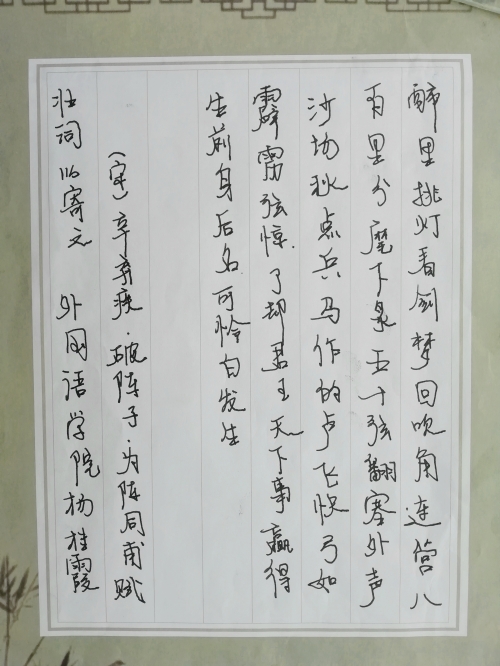 醉里挑灯看剑梦回吹角连营八
百里分麾下炙五十弦翻塞外声
沙场秋点兵马作的卢飞快弓如
霹雳弦惊.了却君王天下事赢得
生前身后名可怜白发生
(宋)辛弃疾.破阵子.为陈同甫赋
壮词以寄之 外国语学院杨桂霞